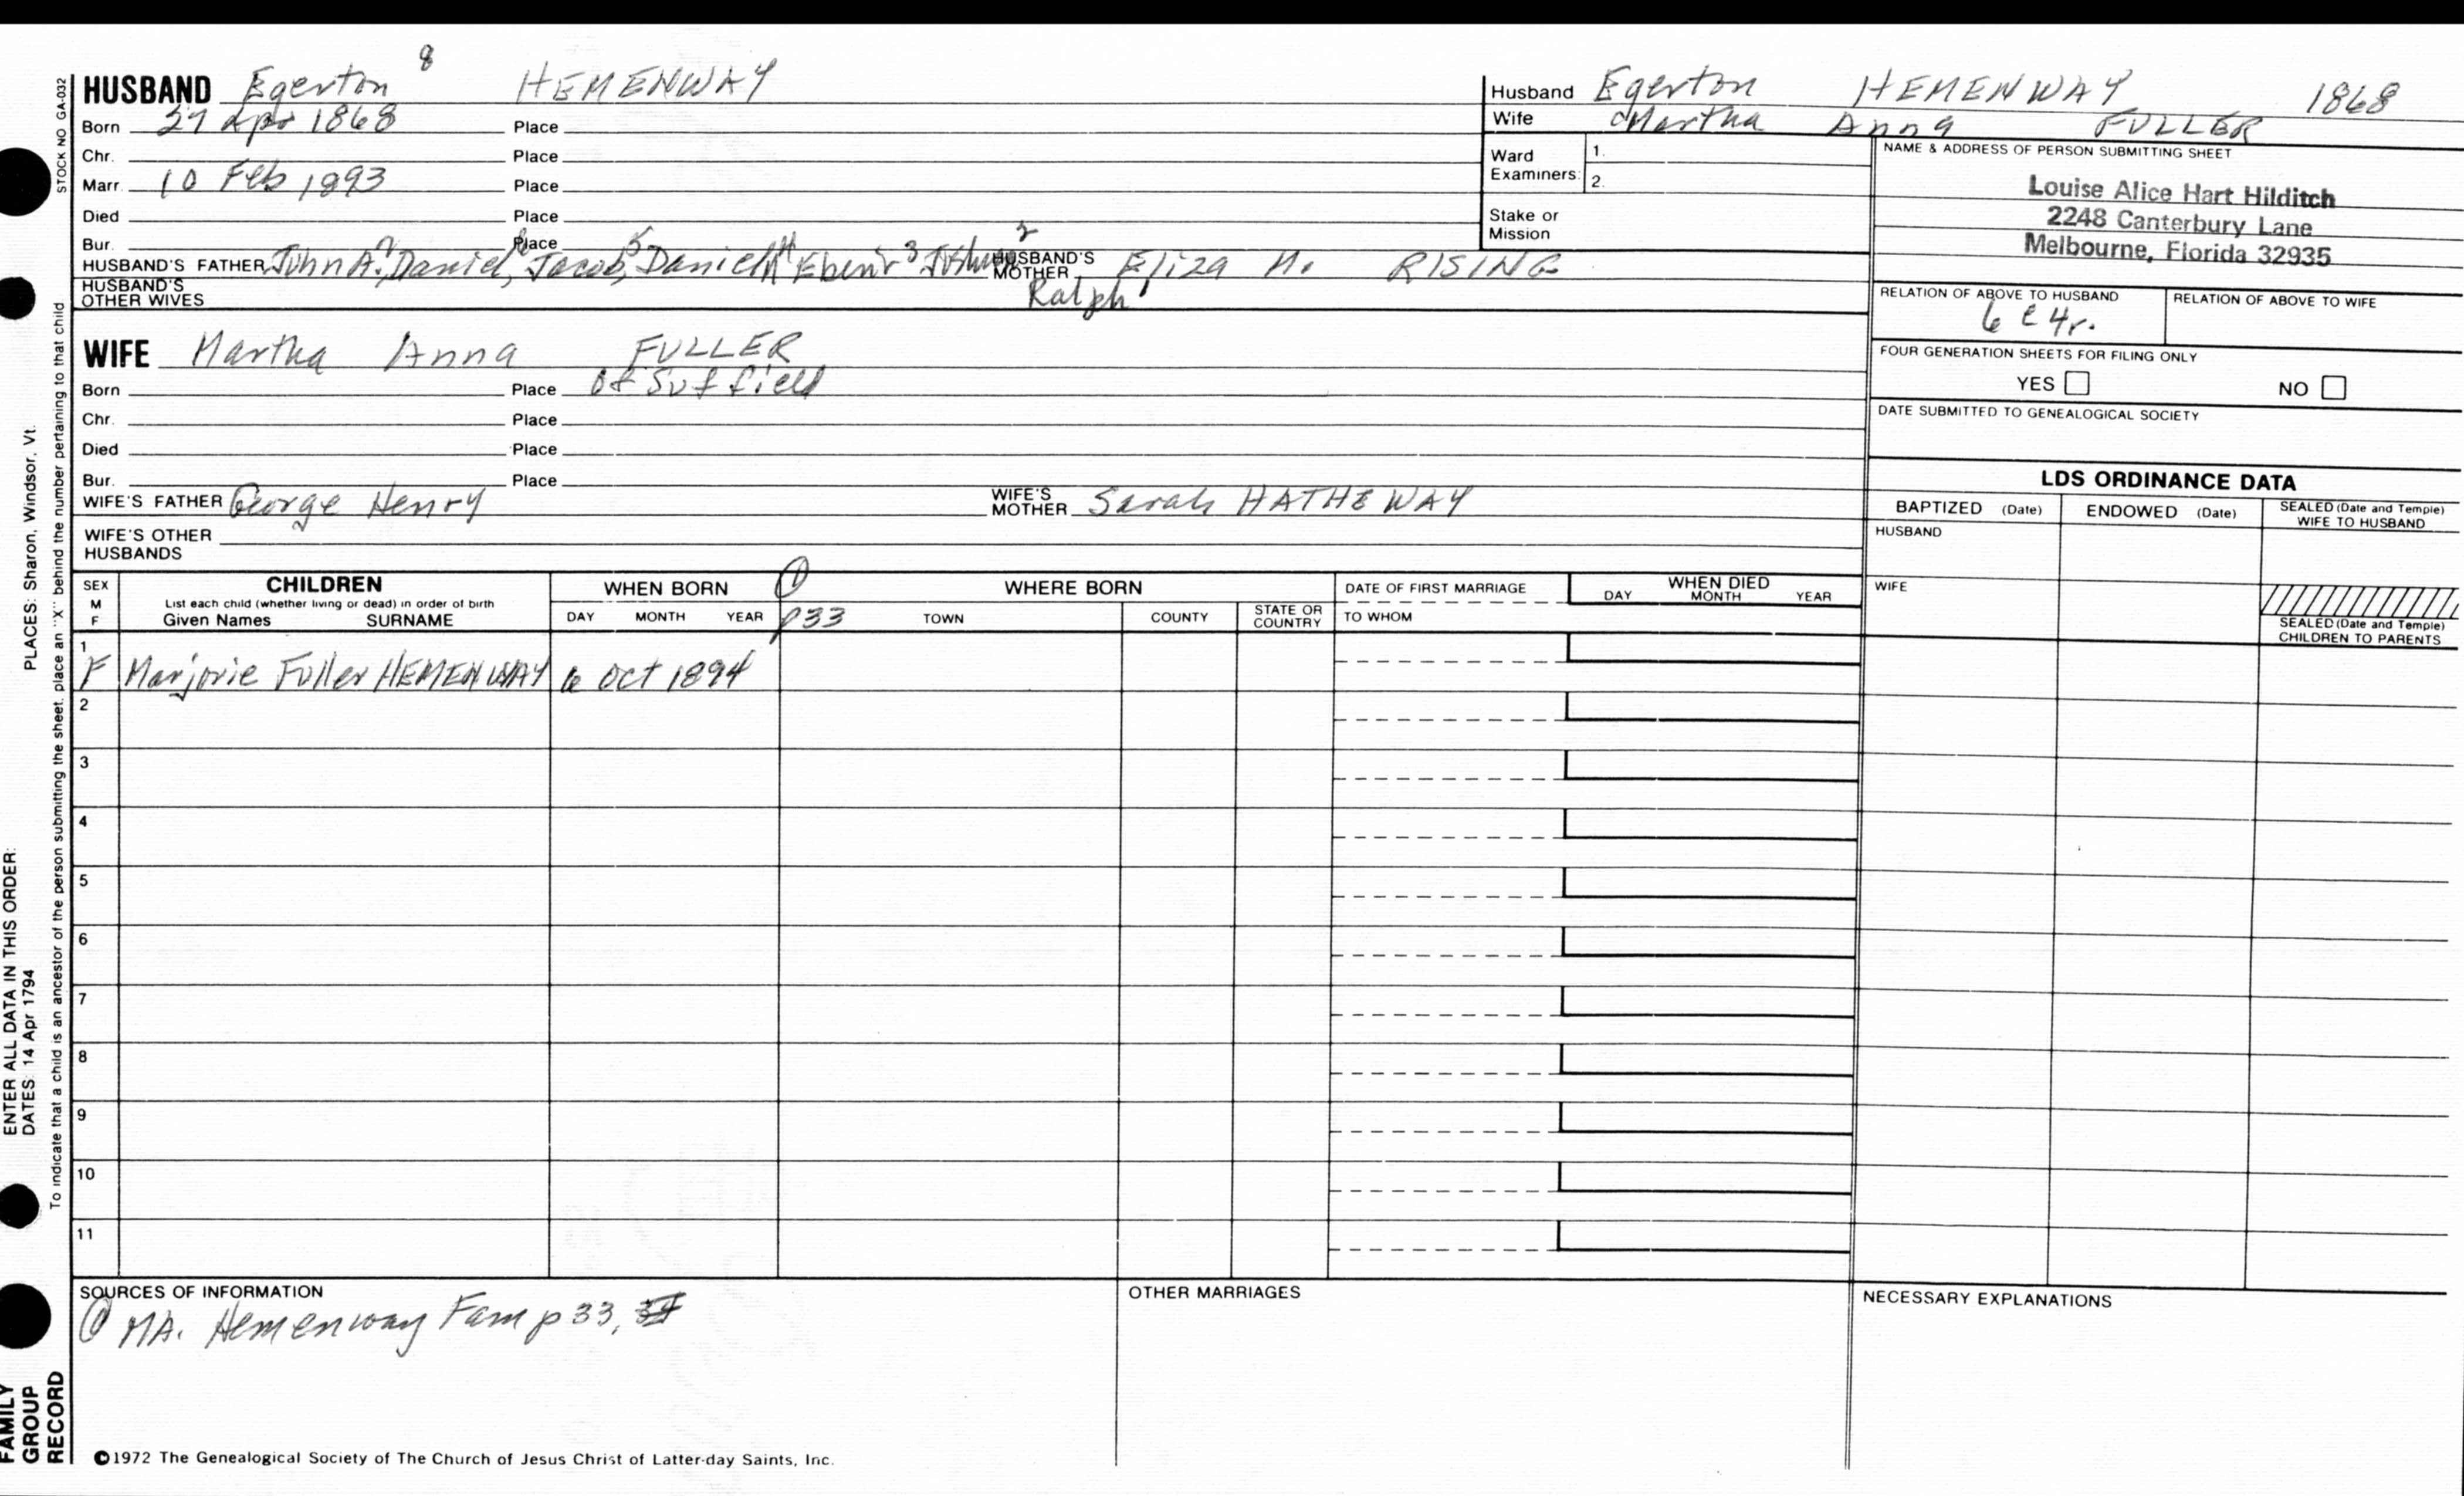 HUSBAND Egerton 8 HEMENWAY
Born 27 Apr 1868 Place
Chr. Place
Marr. 10 Feb 1893 Place
Died Place
Bur. Place
HUSBAND'S FATHER John A.7, Daniel6, Jacob5, Daniel4, Eben'r3 Joshua2 HUSBAND'S MOTHER Eliza M. RISING
Ralph1
HUSBAND'S OTHER WIVES
WIFE Martha Anna FULLER
Born Place of Suffield
Chr. Place
Died Place
Bur. Place
WIFE'S FATHER George Henry WIFE'S MOTHER Sarah HATHEWAY
WIFE'S OTHER HUSBANDS
Husband Egerton HEMENWAY 1868
Wife Martha Anna FULLER
Ward Examiners: 1.
2.
Stake or Mission
NAME & ADDRESS OF PERSON SUBMITTING SHEET
Louise Alice Hart Hilditch
2248 Canterbury Lane
Melbourne, Florida 32935
RELATION OF ABOVE TO HUSBAND RELATION OF ABOVE TO WIFE
6 c 4r.
FOUR GENERATION SHEETS FOR FILING ONLY
YES NO
DATE SUBMITTED TO GENEALOGICAL SOCIETY
LDS ORDINANCE DATA
BAPTIZED (Date) ENDOWED (Date) SEALED (Date and Temple) WIFE TO HUSBAND
HUSBAND
WIFE
SEALED (Date and Temple) CHILDREN TO PARENTS
SEX M F
CHILDREN
List each child (whether living or dead) in order of birth
Given Names SURNAME
WHEN BORN
DAY MONTH YEAR
① p33
WHERE BORN
TOWN COUNTY STATE OR COUNTRY
DATE OF FIRST MARRIAGE
TO WHOM
WHEN DIED
DAY MONTH YEAR
1
F Marjorie Fuller HEMENWAY 6 Oct 1894
2
3
4
5
6
7
8
9
10
11
SOURCES OF INFORMATION
① MA. Hemenway Fam p 33,
OTHER MARRIAGES
NECESSARY EXPLANATIONS
©1972 The Genealogical Society of The Church of Jesus Christ of Latter-day Saints, Inc.
STOCK NO GA-032
To indicate that a child is an ancestor of the person submitting the sheet, place an "X" behind the number pertaining to that child
ENTER ALL DATA IN THIS ORDER:
DATES: 14 Apr 1794 PLACES: Sharon, Windsor, Vt.
FAMILY GROUP RECORD